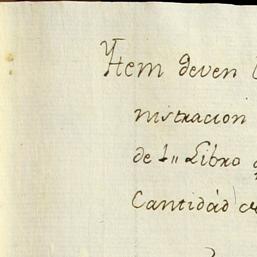 Ytem deven
nistracion
de 1" Libro
Cantidad